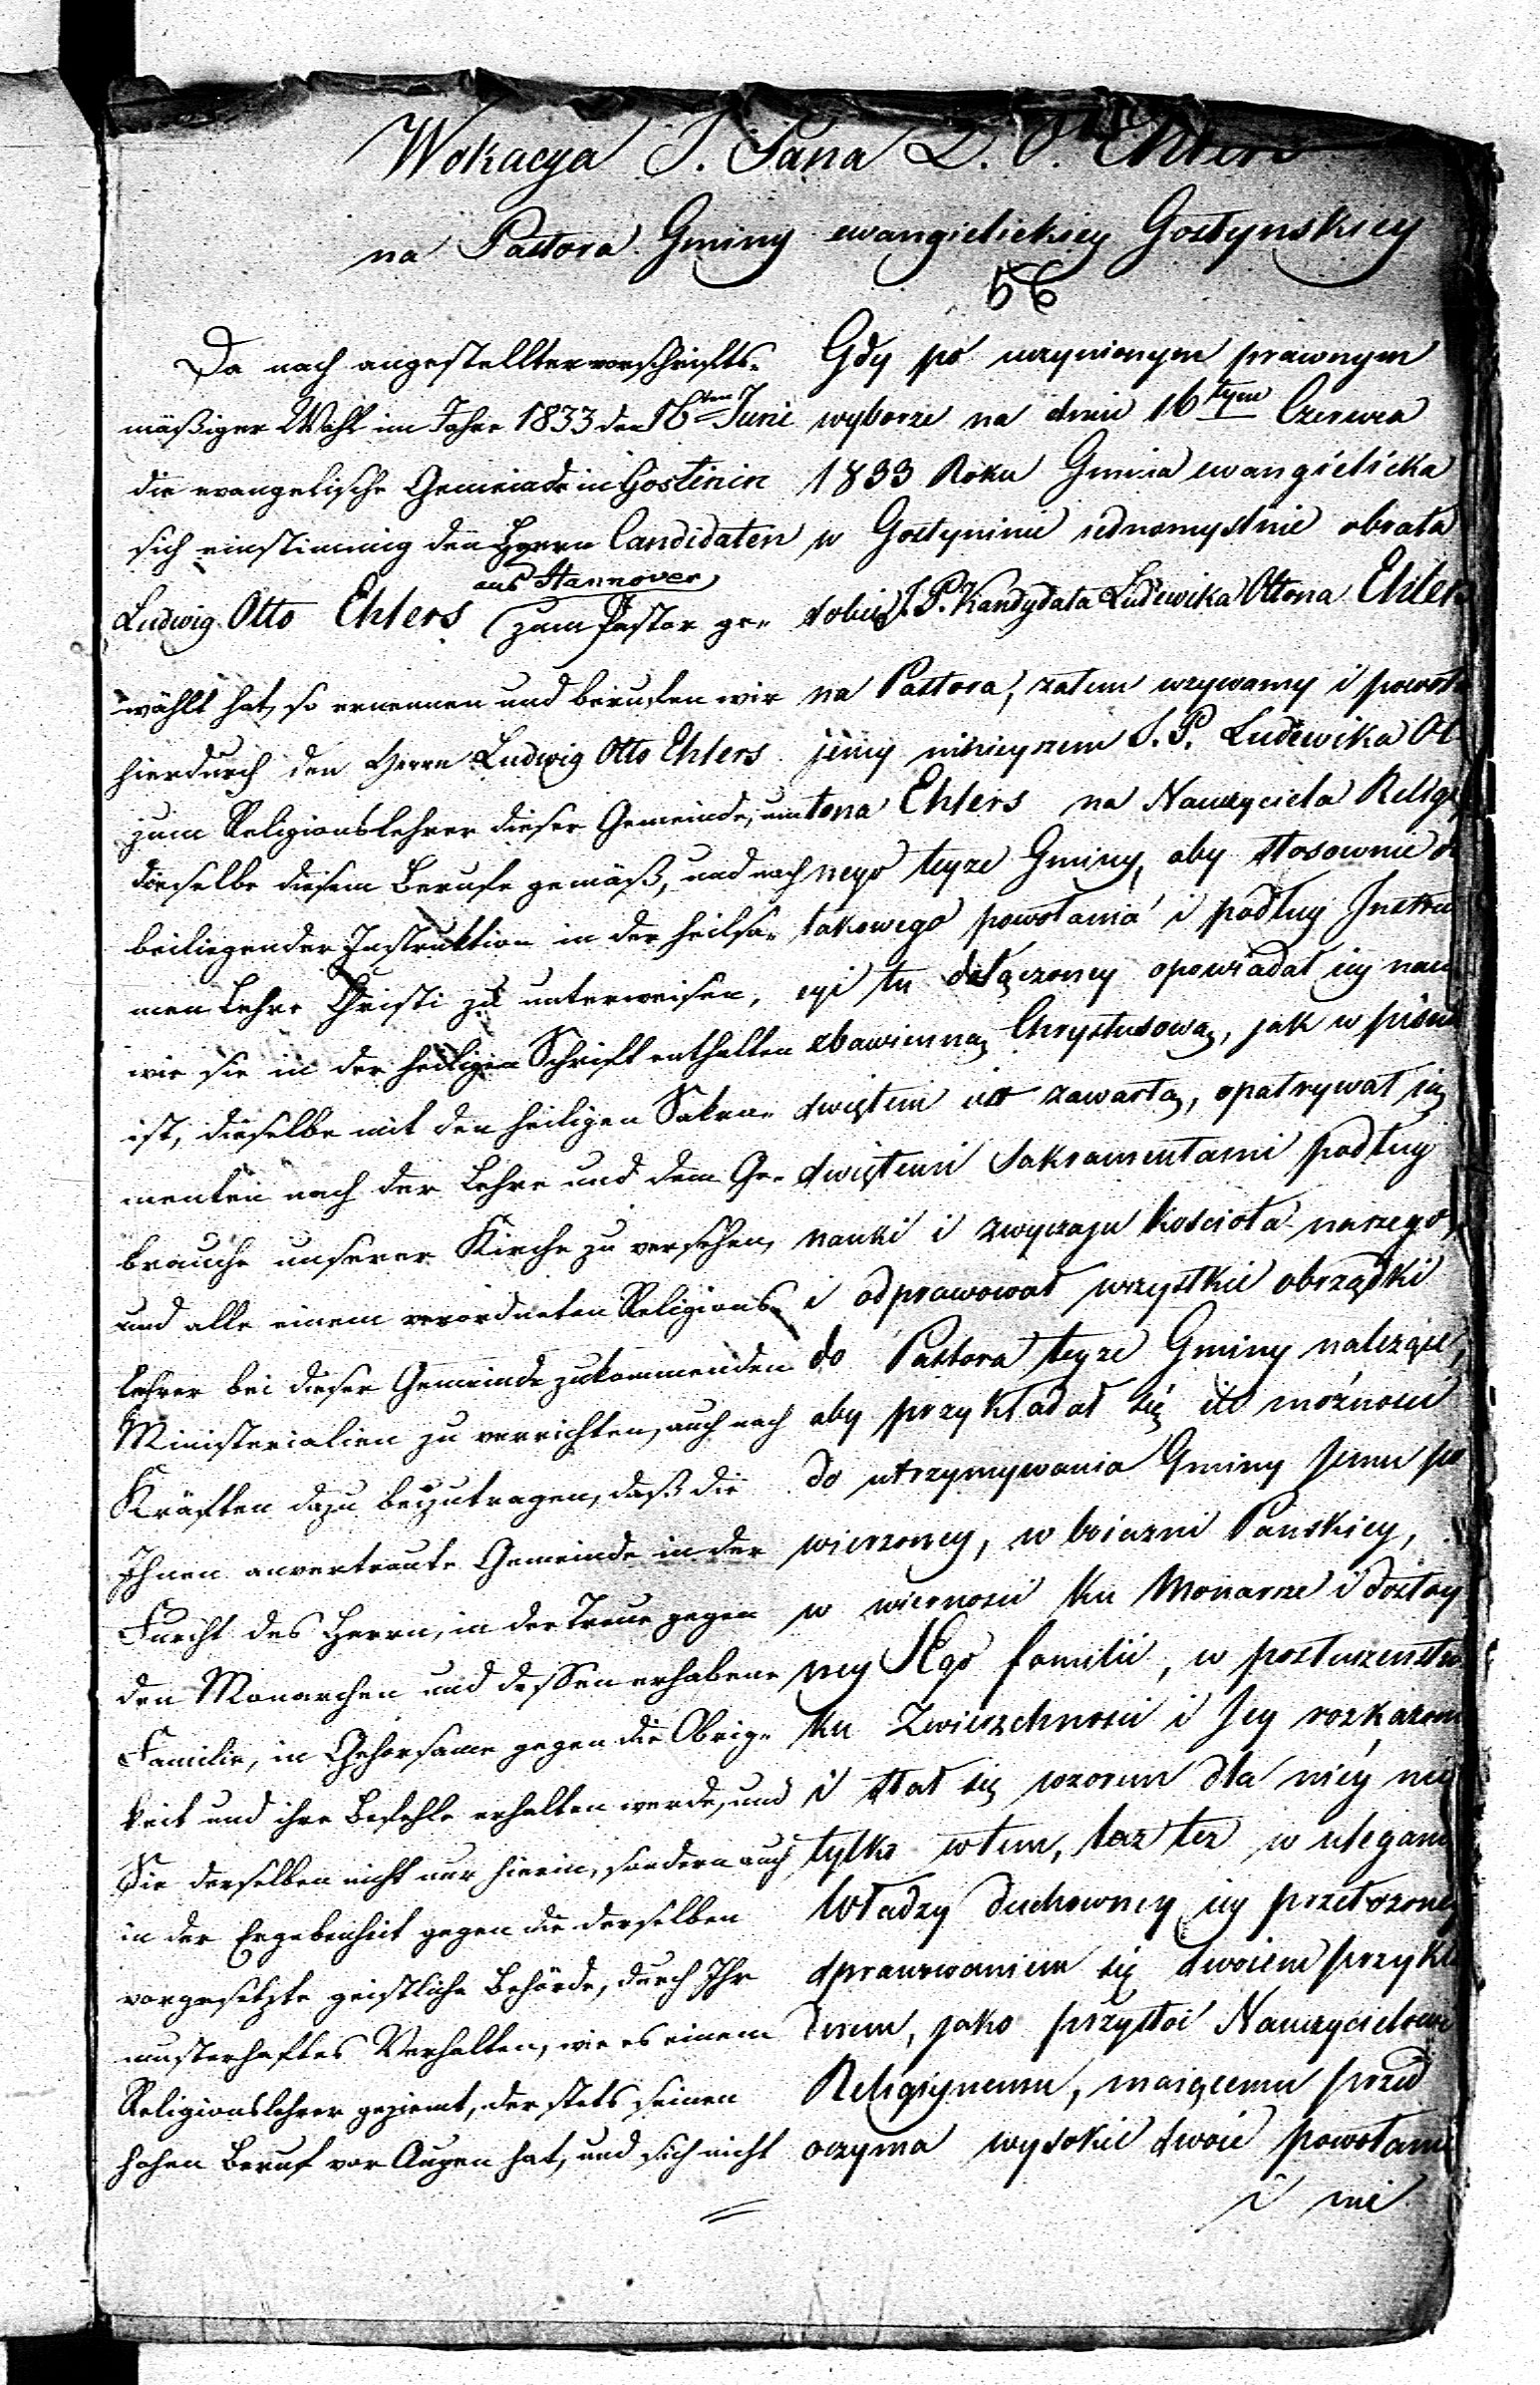 Wokacya J. Pana L. O. Ehlers
na Pastora Gminy ewangielickiey Gostynskiey
56
Da nach angestellter vorschrifts-
mäßiger Wahl im Jahre 1833 den 16ten Juni
die evangelische Gemeinde in Gostinin
sich einstimmig den Herrn Candidaten
aus Hannover
Ludwig Otto Ehlers zum Pastor ge-
wählt hat, so ernennen und berufen wir
hierdurch den Herrn Ludwig Otto Ehlers
zum Religionslehrer dieser Gemeinde, um
dieselbe diesem Berufe gemäß, und nach
beiliegender Instruktion in der heilsa-
men Lehre Christi zu unterweisen,
wie sie in der heiligen Schrift enthalten
ist, dieselbe mit den heiligen Sakra-
menten nach der Lehre und dem Ge-
brauche unserer Kirche zu versehen,
und alle einem verordneten Religions-
lehrer bei dieser Gemeinde zukommenden
Ministerialien zu verrichten, auch nach
Kräften dazu beizutragen, daß die
Ihnen anvertraute Gemeinde in der
Furcht des Herrn, in der Treue gegen
den Monarchen und dessen erhabene
Familie, in Gehorsame gegen die Obrig-
keit und ihre Befehle erhalten werde, und
Sie derselben nicht nur hierin, sondern auch
in der Ergebenheit gegen die derselben
vorgesetzte geistliche Behörde, durch Ihr
musterhaftes Verhalten, wie es einem
Religionslehrer geziemt, der stets seinen
hohen Beruf vor Augen hat, und sich nicht
Gdy po uczynionym prawnym
wyborze na dniu 16tym Czerwca
1833 Roku Gmina ewangielicka
w Gostyninie iednomyslnie obrała
sobie J. P. Kandydata Ludewika Ottona Ehlers
na Pastora, zatem wzywamy i powoła
jemy ninieyszem J. P. Ludewika Ot
tona Ehlers na Nauczyciela Religiy
nego teyze Gminy, aby stosownie do
takowego powołania i podług Instru
cyi tu dołączoney opowiadał iey nau
zbawienną Chrystusową, jak w piśmie
swiętem iest zawarta, opatrywał ią
swiętemi Sakramentami podług
nauki i zwyczaju kościoła naszego,
i odprawował wszystkie obrządki
do Pastora teyze Gminy należące,
aby przykładał się ile możności
do utrzymywania Gminy Jemu po
wierzoney, w boiazni Panskiey,
w wierności ku Monarsze i dostoy
ney Jego familii, w posłuszenstwie
ku Zwierzchności i Jey rozkazom
i stał się wzorem dla niéy nie
tylko w tem, lecz tez w uleganiu
Władzy duchowney iey przełożoney
sprawowaniem się swoiem przykła
dnem, jako przystoi Nauczycielowi
Religiynemu, maiącemu przed
oczyma wysokie swoie powołanie
i nie